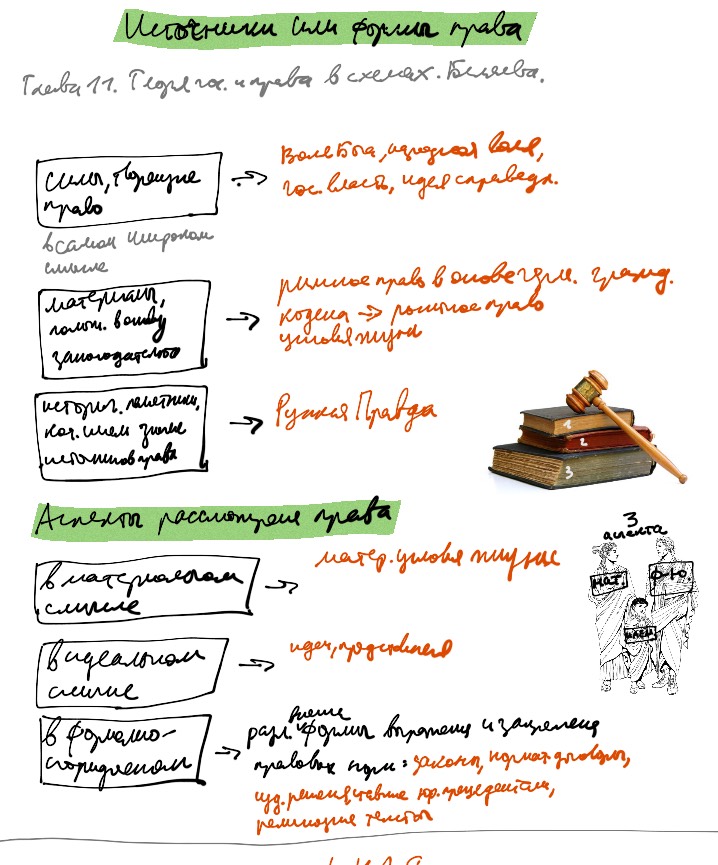 Источники или формы права
Глава 11. Теория гос. и права в схемах. Беляева.
силы, творящие
право
Воля Бога, народная воля,
гос. власть, идея справедл.
в самом широком
смысле
материалы,
полож. в основу
законодательства
римское право в основе герм. гражд.
кодекса → римское право
условия жизни
историч. памятники,
кот. имеют значение
источников права
Русская Правда
1
2
3
Аспекты рассмотрения права
3
аспекта
в материальном
смысле
матер. условия жизни
мат.
ф-ю.
идеи
в идеальном
смысле
идеи, представления
в формально-
юридическом
внешние
разл. формы выражения и закрепления
правовых норм: законы, нормат. договоры,
суд. решения, ставшие пр. прецедентами,
религиозные тексты